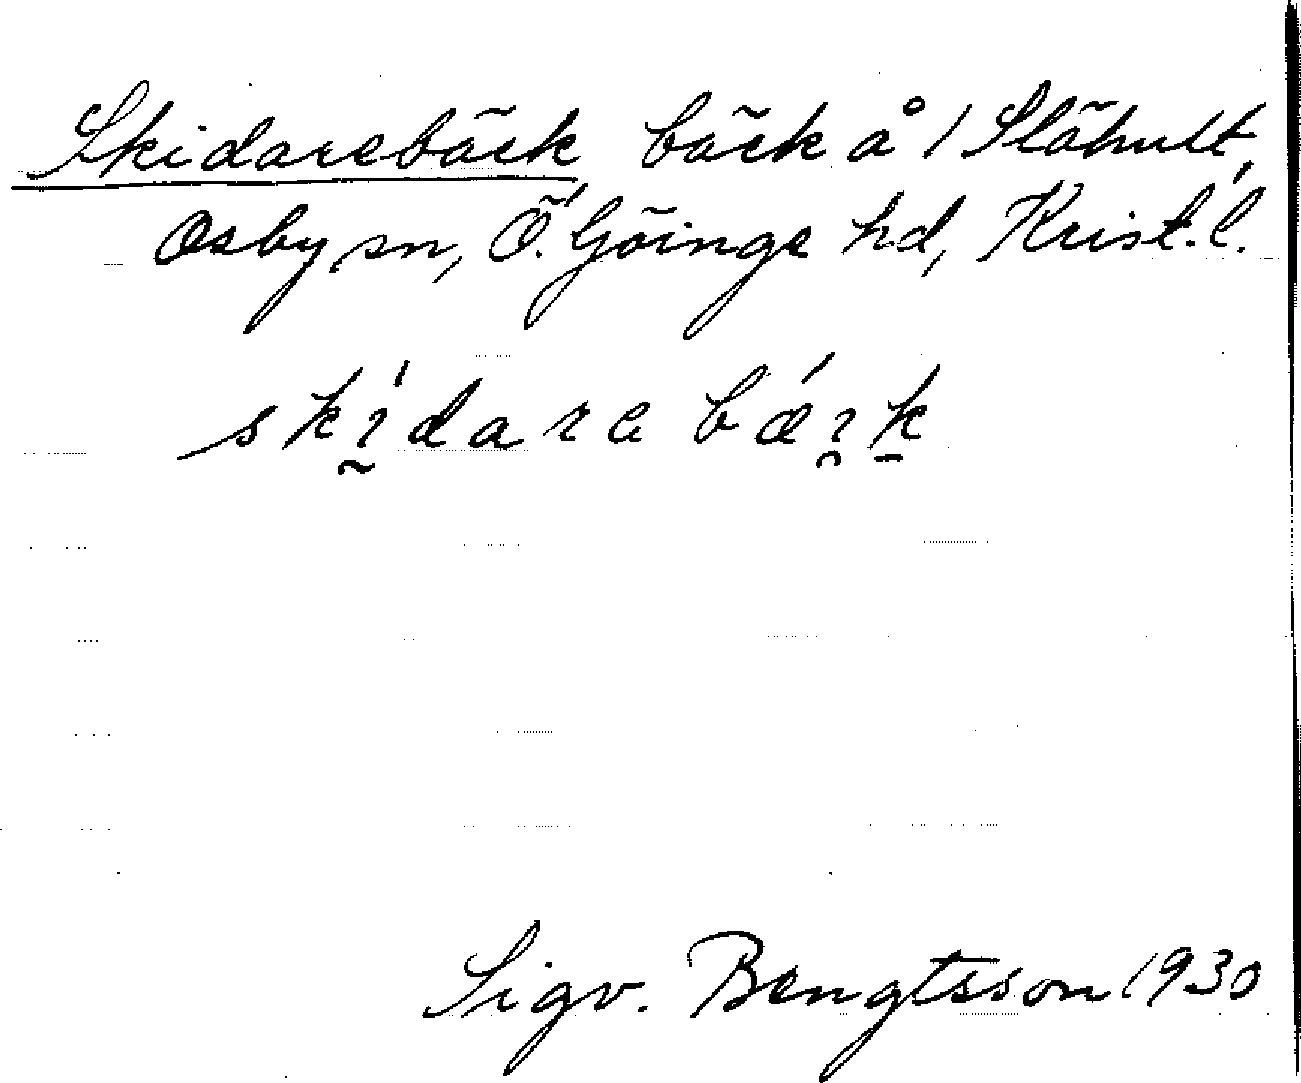 Skidarebäck bäck å 1 Slähult,
Osby sn, Ö. Göinge hd, Krist. l.
Sigv. Bengtsson 1930